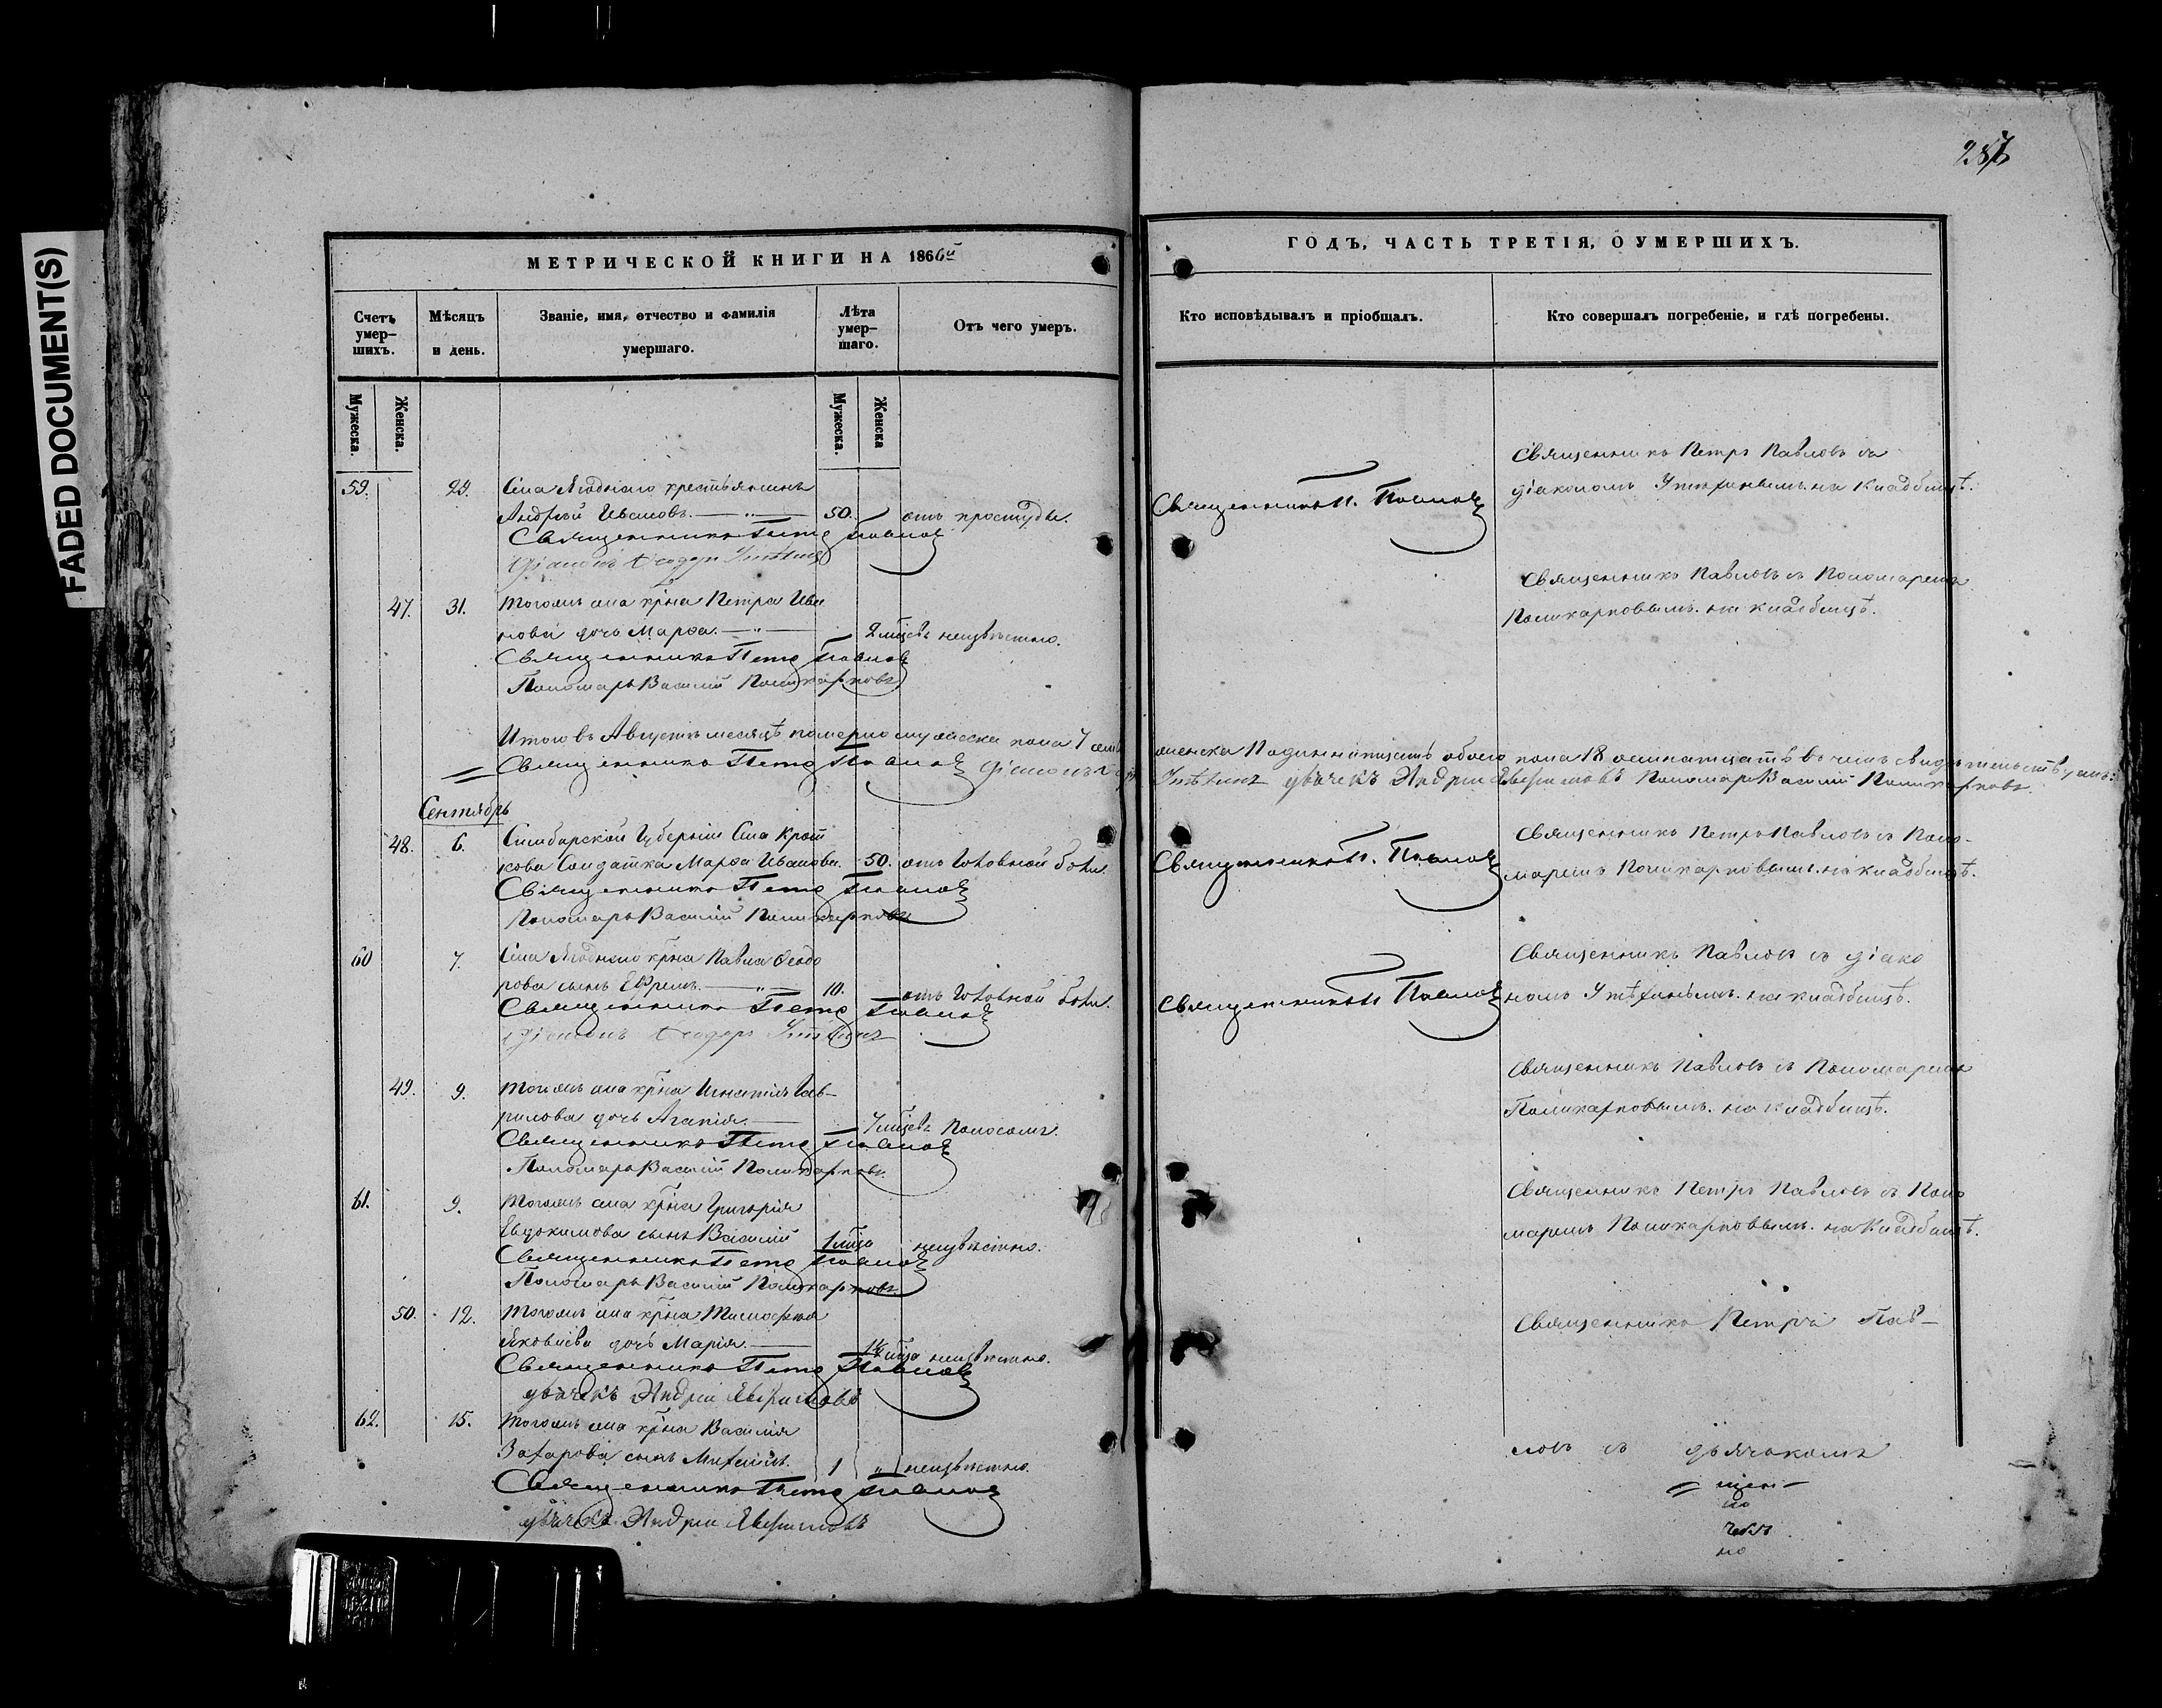 FADED DOCUMENT(S)
287
МЕТРИЧЕСКОЙ КНИГИ НА 1866й
Счетъ умер-шихъ.
Мѣсяцъ и день.
Званіе, имя, отчество и фамилія умершаго.
Лѣта умер-шаго.
Отъ чего умеръ.
Мужеска.
Женска.
Мужеска.
Женска
59. 29. Села Ягоднаго крестьянинъ
Андрей Ивановъ. 50. отъ простуды.
Священникъ Петръ Павловъ
Діаконъ Ѳеодоръ
47. 31. Тогожъ села крна Петра Ива
нова дочь Марѳа. 2 мцевъ неизвѣстно.
Священникъ Петръ Павловъ
Пономарь Василій Поликарповъ
Итого въ Августѣ месяцѣ померло мужеска пола 7
Священникъ Петръ Павловъ Діаконъ
Сентябрь
48. 6. Симбирской Губерніи Села
кова Солдатка Марѳа Иванова. 50. отъ головной боли.
Священникъ Петръ Павловъ
Пономарь Василій Поликарповъ
60 7. Села Ягоднаго крна Павла Ѳеодо
рова сынъ Ефремъ. 10. отъ головной боли.
Священникъ Петръ Павловъ
Діаконъ Ѳеодоръ
49. 9. Тогожъ села крна Игнатія Гав-
рилова дочь Агапія. 7 мцевъ поносомъ.
Священникъ Петръ Павловъ
Пономарь Василій Поликарповъ.
61. 9. Тогожъ села крна Григорія
Евдокимова сынъ Василій 1 мца неизвѣстно.
Священникъ Петръ Павловъ
Пономарь Василій Поликарповъ
50. 12. Тогожъ села крна Тимофея
Яковлева дочь Марія. мца неизвѣстно.
Священникъ Петръ Павловъ
дьячекъ Андрей
62. 15. Тогожъ села крна Василія
Захарова сынъ Михаилъ. 1 " неизвѣстно.
Священникъ Петръ Павловъ
дьячекъ Андрей
ГОДЪ, ЧАСТЬ ТРЕТІЯ, О УМЕРШИХЪ.
Кто исповѣдывалъ и пріобщалъ.
Кто совершалъ погребеніе, и гдѣ погребены.
Священникъ П. Павловъ
Священникъ Петръ Павловъ съ
діакономъ на кладбищѣ.
Священникъ Павловъ съ Пономаремъ
Поликарповымъ. на кладбищѣ.
женска 11 одиннатцать обоего пола 18 осмнатцать въ чемъ свидѣтельствуемъ:
дьячекъ Андрей Пономарь Василій Поликарповъ.
Священникъ П. Павловъ
Священникъ Петръ Павловъ съ Поно-
маремъ Поликарповымъ. на кладбищѣ.
Священникъ П Павловъ
Священникъ Павловъ съ діако
номъ на кладбищѣ.
Священникъ Павловъ съ Пономаремъ
Поликарповымъ. на кладбищѣ.
Священникъ Петръ Павловъ съ Поно
маремъ Поликарповымъ. на кладбищѣ.
Священникъ Петръ Пав-
ловъ съ дьячькомъ